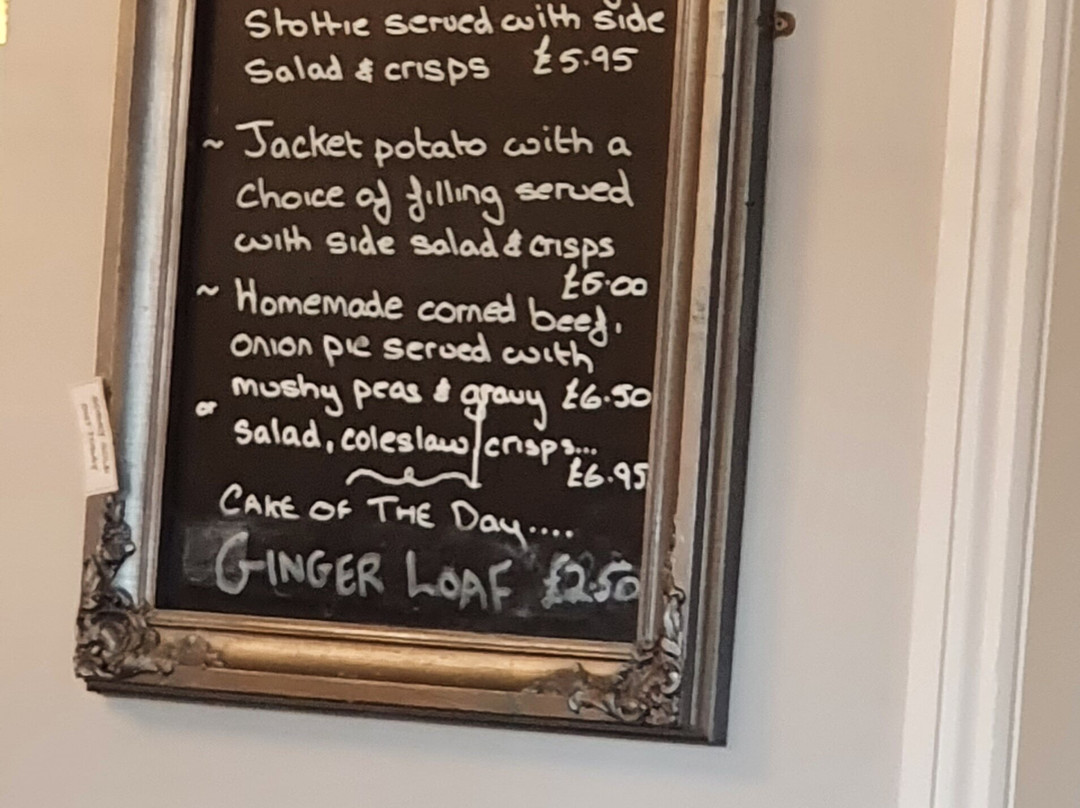 Stottie served with side
Salad & crisps £5.95
~ Jacket potato with a
choice of filling served
with side salad & crisps
£6.00
~ Homemade corned beef,
onion pie served with
mushy peas & gravy £6.50
or
salad, coleslaw, crisps...
£6.95
CAKE OF THE Day....
GINGER LOAF £2.50